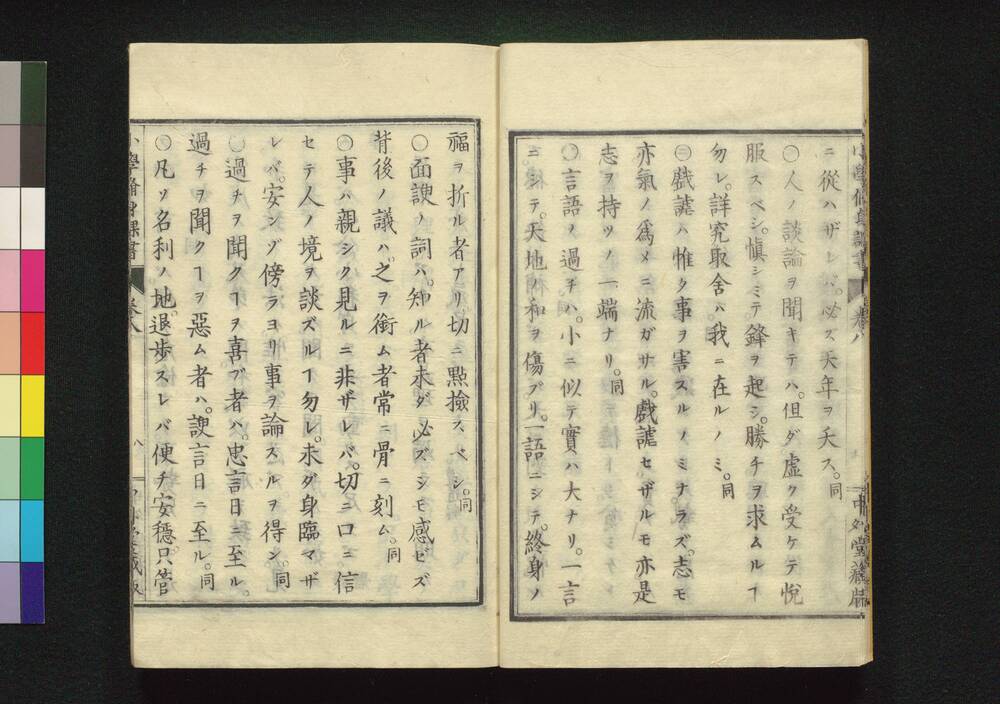 ニ從ハザレバ。必ズ天年ヲ夭ス。同
〇人ノ談論ヲ聞キテハ。但ダ虚ク受ケテ悦
服スベシ。愼シミテ鋒ヲ起シ。勝チヲ求ムルヿ
勿レ。詳究取舍ハ。我ニ在ルノミ。同
〇戯謔ハ惟タ事ヲ害スルノミナラズ。志モ
亦氣ノ爲メニ流ガサル。戯謔セザルモ亦是
志ヲ持ツノ一端ナリ。同
〇言語ノ過チハ。小ニ似テ實ハ大ナリ。一言
ニシテ。天地ノ和ヲ傷ブリ。一語ニシテ。終身ノ
福ヲ折ル者アリ。切ニ點撿スベシ。同
〇面諛ノ詞ハ。知ル者未ダ必ズシモ感ゼズ
背後ノ議ハ。之ヲ銜ム者常ニ骨ニ刻ム。同
〇事ハ親シク見ルニ非ザレバ。切ニ口ニ信
セテ人ノ境ヲ談ズルヿ勿レ。未ダ身臨マザ
レバ。安ンゾ傍ラヨリ事ヲ論スルヲ得ン。同
〇過チヲ聞クヿヲ喜ブ者ハ。忠言日ニ至ル。
過チヲ聞クヿヲ惡ム者ハ。諛言日ニ至ル。同
〇凡ソ名利ノ地。退歩スレバ便チ安穩。只管
小學脩身課書
卷八
八